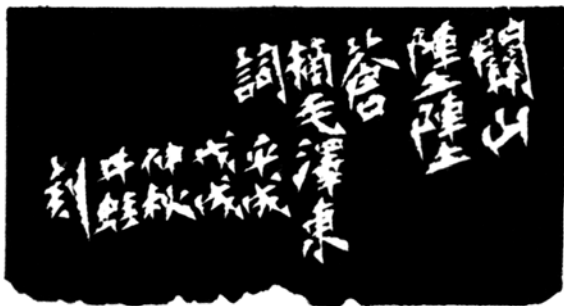 關山
陣陣
蒼
摘毛澤東
詞 平成
戊戌
仲秋
井蛙
刻